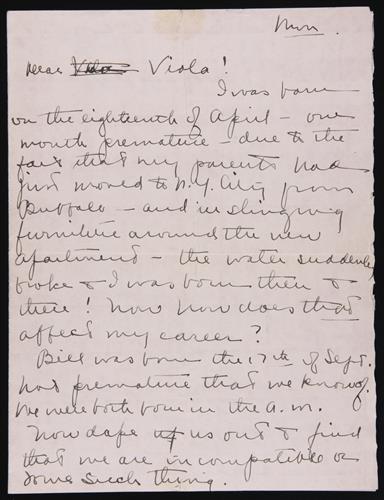 Mon.
Dear Viola!
I was born
on the eighteenth of April - one
month premature - due to the
fact that my parents had
just moved to N.Y. City from
Buffalo - and in slinging
furniture around the new
apartment - the water suddenly
broke & I was born then &
there! Now how does that
affect my career?
Bill was born the 17th of Sept.
not premature that we know of.
We were both born in the a.m.
Now dope us out & find
that we are incompatible or
some such thing.